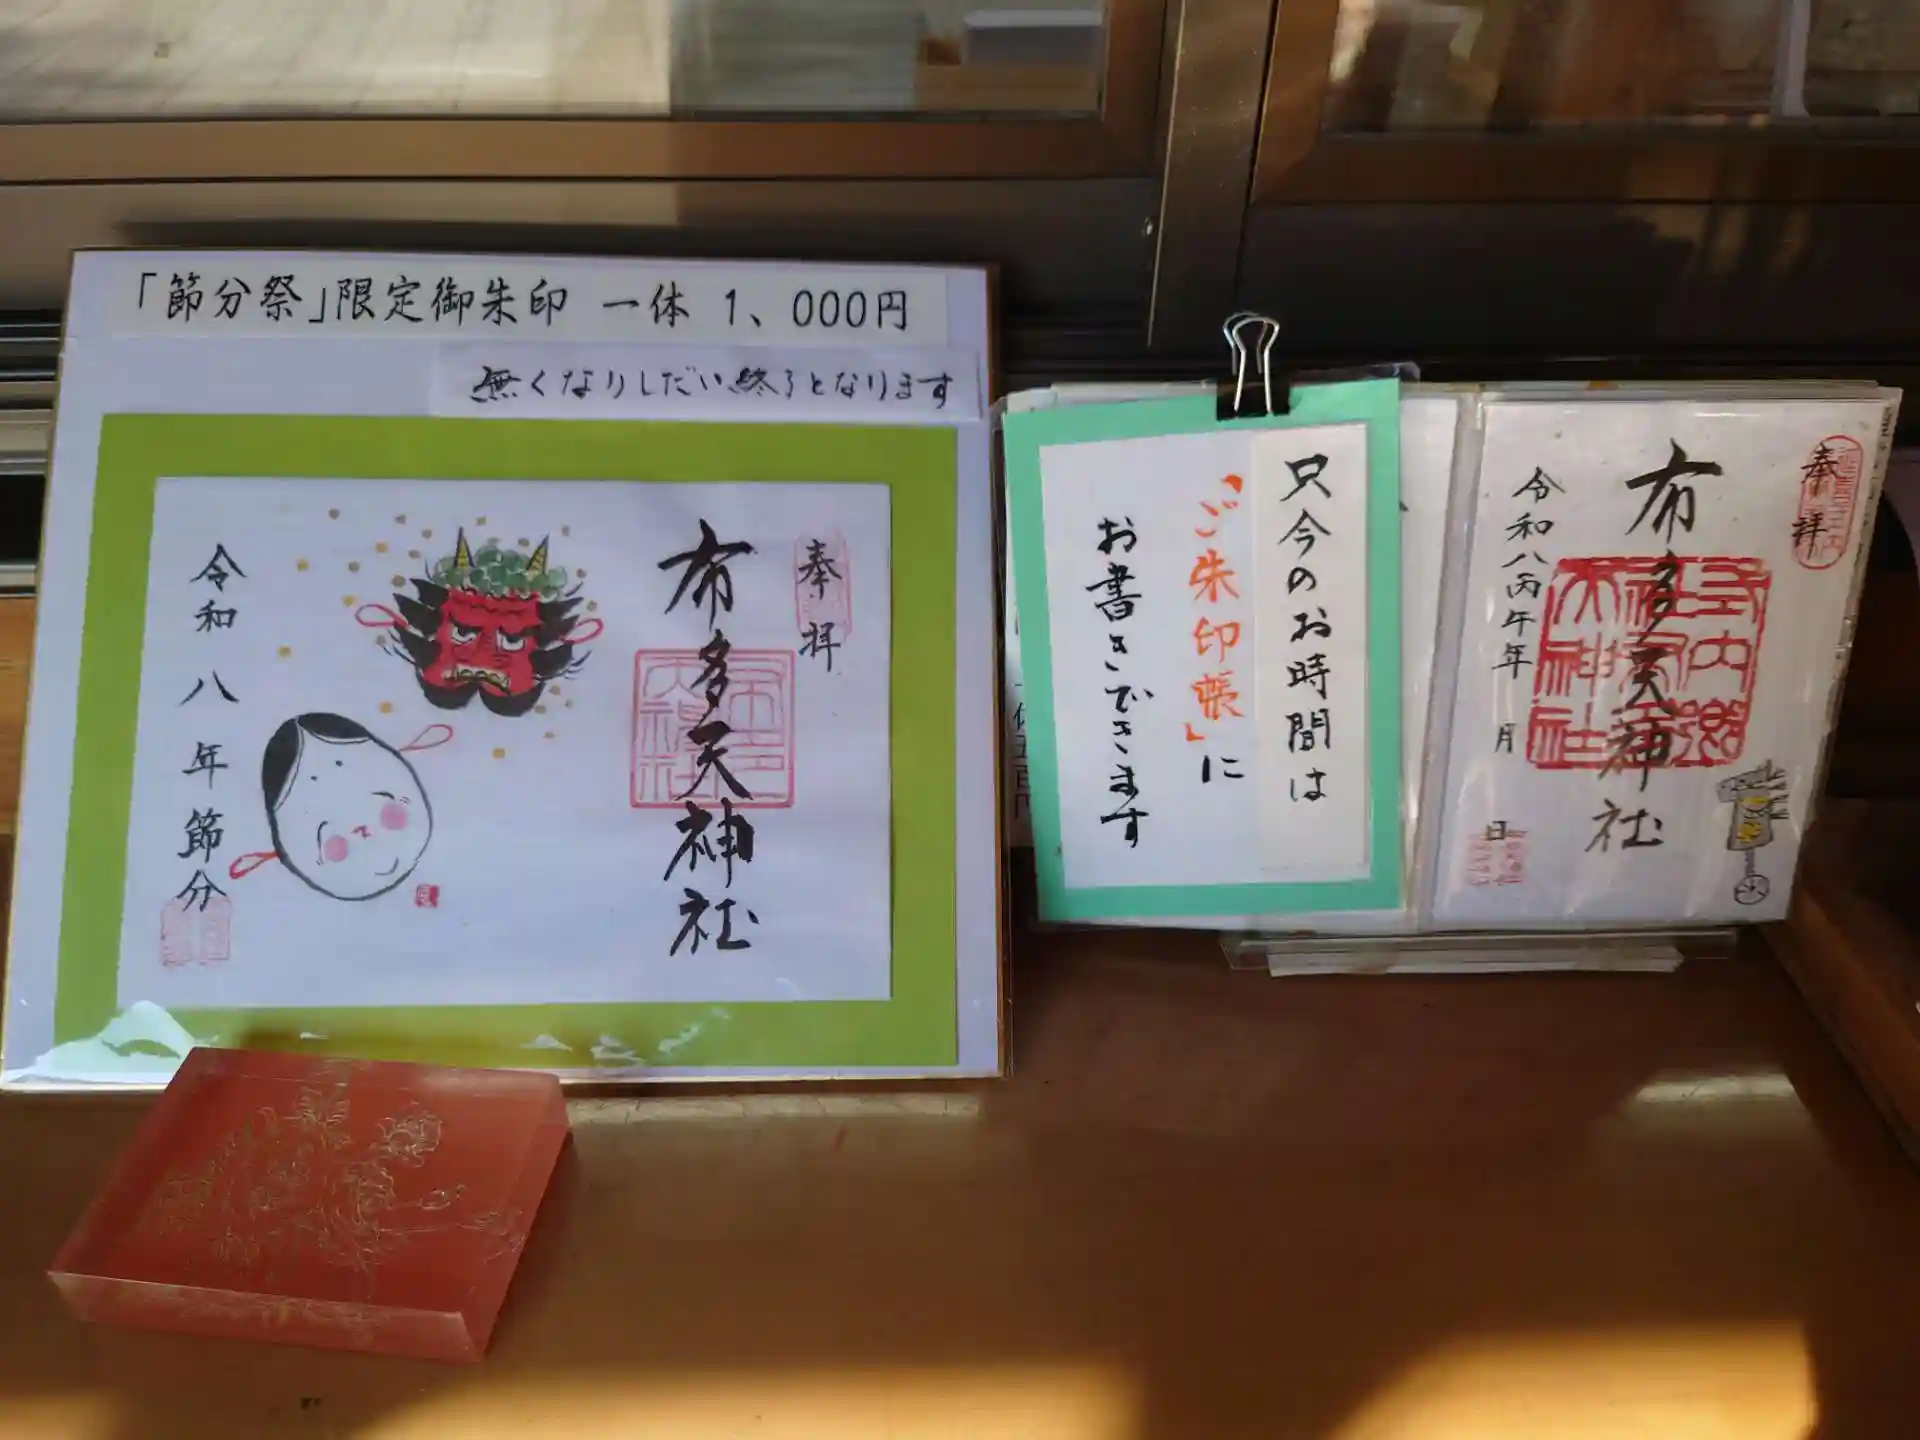 「節分祭」限定御朱印 一体 1、000円
無くなりしだい終了となります
奉拝
布多天神社
令和八年節分
只今のお時間は
「ご朱印帳」に
お書きできます
奉拝
布多天神社
式内郷社布多天神社
令和八丙午年 月 日